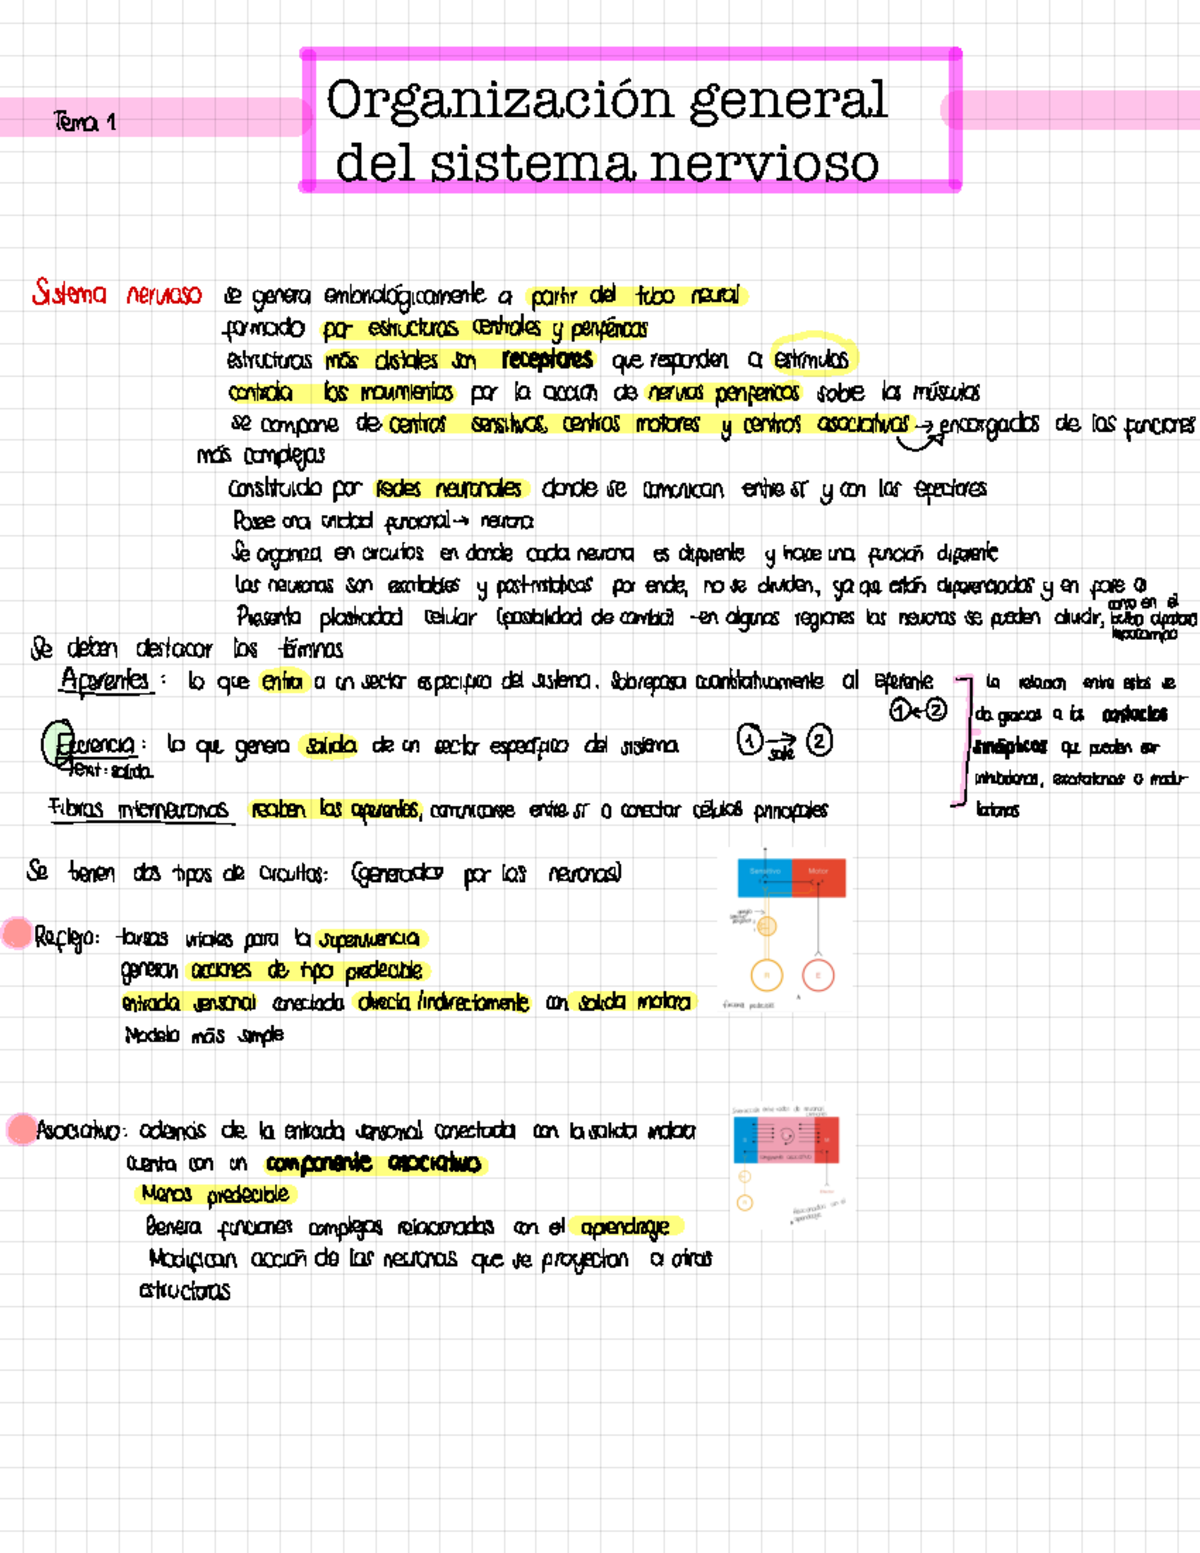 Tema 1
Organización general
del sistema nervioso
Sistema nervioso se genera embriológicamente a partir del tubo neural
formado por estructuras centrales y periféricas
estructuras más distales son receptores que responden a estímulos
controla los movimientos por la acción de nervios periféricos sobre los músculos
se compone de centros sensitivos, centros motores y centros asociativos → encargados de las funciones
más complejas
Constituido por redes neuronales donde se comunican entre sí y con los efectores
Posee una unidad funcional → neurona
Se organiza en circuitos en donde cada neurona es diferente y hace una función diferente
Las neuronas son excitables y post-mitóticas por ende, no se dividen, ya que están diferenciadas y en fase 0
Presenta plasticidad celular (posibilidad de cambio) - en algunas regiones las neuronas se pueden dividir, como en el
bulbo olfatorio
hipocampo
Se deben destacar los términos
Aferentes: lo que entra a un sector específico del sistema. Sobrepasa cuantitativamente al eferente
1 ← 2
Eferencia: lo que genera salida de un sector específico del sistema
1 → 2
sale
ext: salida
Fibras interneuronas reciben las aferentes, comunicarse entre sí o conectar células principales
La relación entre estos se
da gracias a los contactos
sinápticos que pueden ser
inhibidoras, excitatorias o modu-
ladoras
Se tienen dos tipos de circuitos: (generador por las neuronas)
Reflejo: tareas vitales para la supervivencia
generan acciones de tipo predecible
entrada sensorial conectada directa/indirectamente con salida motora
Modelo más simple
Sensitivo Motor
R E
Asociativo: además de la entrada sensorial conectada con la salida motora
cuenta con un componente asociativo
Menos predecible
Genera funciones complejas relacionadas con el aprendizaje
Modifican acción de las neuronas que se proyectan a otras
estructuras